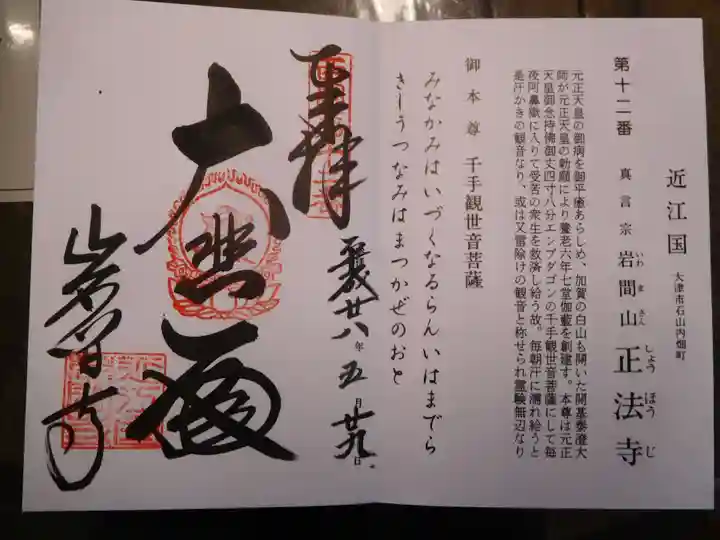 近江国
大津市石山内畑町
第十二番 真言宗 岩間山 正法寺
いわ ま さん しょう ほう じ
元正天皇の御病を御平癒あらしめ、加賀の白山も開いた開基泰澄大
師が元正天皇の勅願により養老六年七堂伽藍を創建す。本尊は元正
天皇御念持佛御丈四寸八分エンブダゴンの千手観世音菩薩にして毎
夜阿鼻獄に入りて受苦の衆生を救済し給う故。毎朝汗に濡れ給うと
是汗かきの観音なり、或は又雷除けの観音と称せられ霊験無辺なり
御本尊 千手観世音菩薩
みなかみはいづくなるらんいはまでら
きしうつなみはまつかぜのおと
奉拝
廿八年五月廿九日
大悲殿